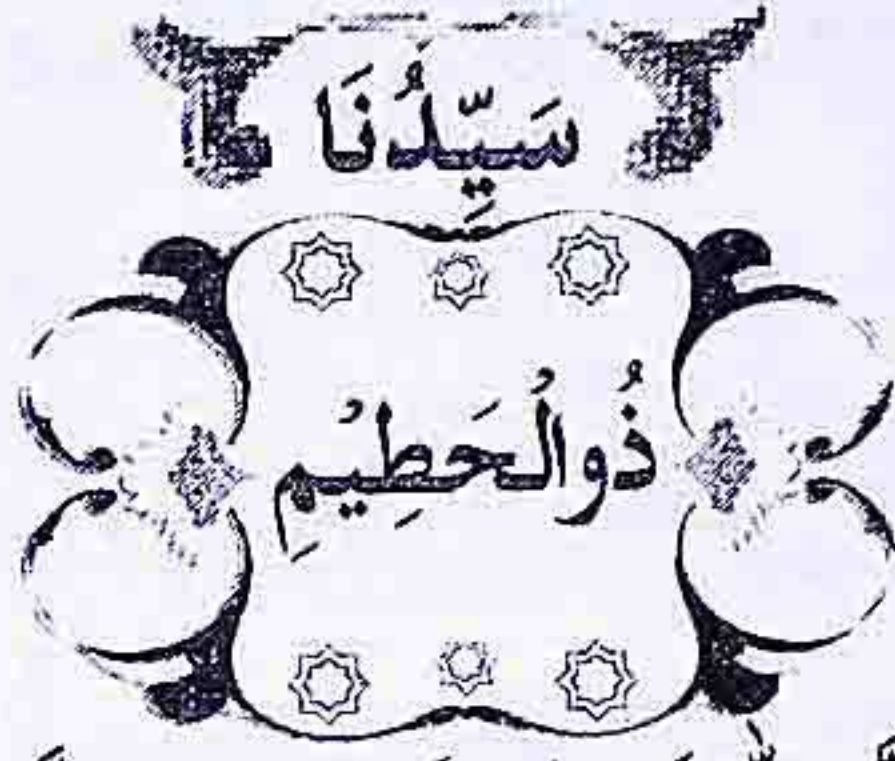 سَيِّدُنَا
ذُوالْحَطِيْمِ